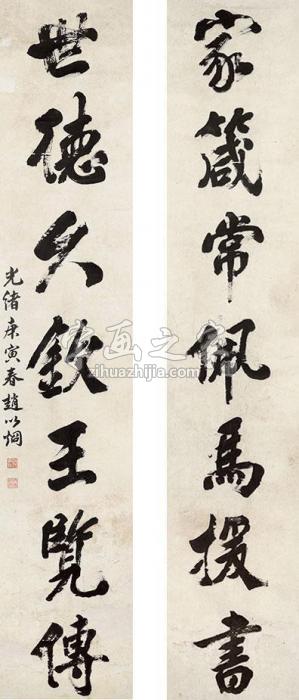 家箴常佩馬援書
世德久欽王覽傳
光緒庚寅春趙以炯
字画之家
zihuazhijia.com